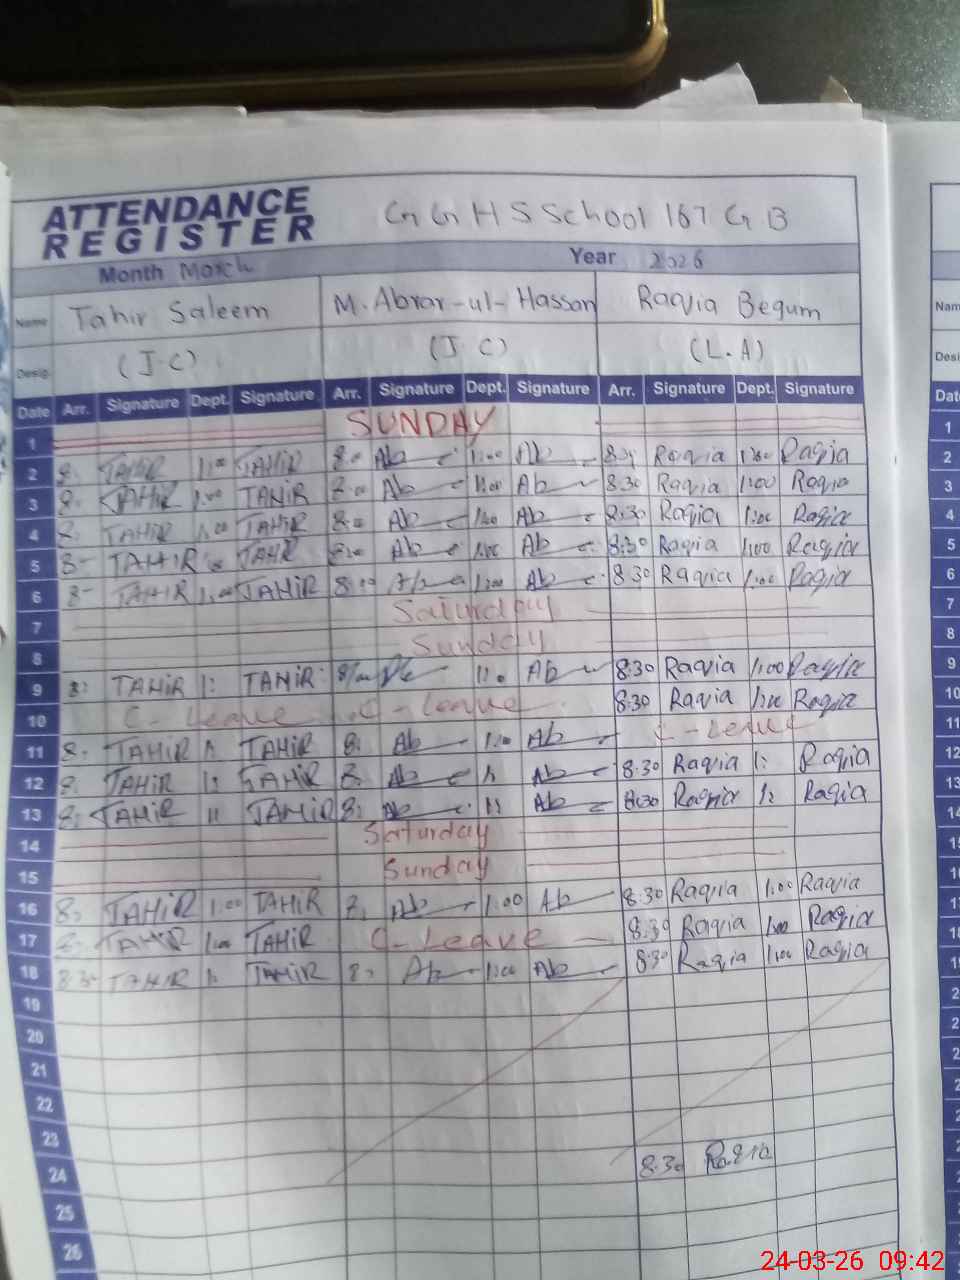 ATTENDANCE REGISTER
G G H S School 167 G B
Month March Year 2026
Name Tahir Saleem M. Abrar-ul-Hassan Raqvia Begum
Desig. (J.C) (J.C) (L.A)
Date Arr. Signature Dept. Signature Arr. Signature Dept. Signature Arr. Signature Dept. Signature
1 SUNDAY
2 8: TAHIR 1:00 TAHIR 8:00 Ab 1:00 Ab Raqvia Raqia
3 8: TAHIR 1:00 TAHIR 8:00 Ab 1:00 Ab 8:30 Raqvia 1:00 Raqia
4 8: TAHIR 1:00 TAHIR 8:00 Ab 1:00 Ab 8:30 Raqia 1:00 Raqia
5 8- TAHIR TAHIR 8:00 Ab 1:00 Ab 8:30 Raqvia 1:00 Raqvia
6 8- TAHIR 1:00 TAHIR 8:00 Ab 1:00 Ab 8:30 Raqvia 1:00 Raqvia
7 Saturday
8 Sunday
9 8: TAHIR 1: TAHIR Ab 8:30 Raqvia 1:00 Raqvia
10 C-Leave C-Leave 8:30 Raqvia 1:00 Raqvia
11 8: TAHIR TAHIR 8: Ab 1:00 Ab C-Leave
12 8: TAHIR 1: TAHIR 8: Ab Ab 8.30 Raqvia 1: Raqia
13 8: TAHIR 1: TAHIR 8: Ab 1: Ab 8:30 Raqvia 1: Raqia
14 Saturday
15 Sunday
16 8: TAHIR 1:00 TAHIR 8. Ab 1:00 Ab 8.30 Raqvia 1:00 Raqvia
17 8: TAHIR 1:00 TAHIR C-Leave 8:30 Raqvia 1:00 Raqia
18 8:30 TAHIR TAHIR 8: Ab 1:00 Ab 8:30 Raqvia 1:00 Raqvia
19
20
21
22
23
24 8.30 Raqia
25
26
Nam
Desi
Date
1
2
3
4
5
6
7
8
9
10
11
12
13
14
24-03-26 09:42